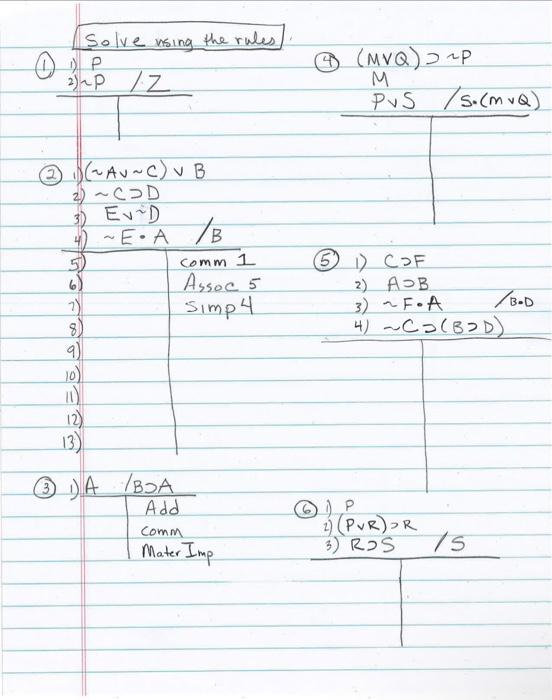 Solve using the rules.
① 1) P
2) ~P /Z
② 1) (~A∨~C) ∨ B
2) ~C⊃D
3) E∨~D
4) ~E • A /B
5) comm 1
6) Assoc 5
7) Simp 4
8)
9)
10)
11)
12)
13)
③ 1) A /B⊃A
Add
comm
Mater Imp
④ (M∨Q)⊃~P
M
P∨S /S•(M∨Q)
⑤ 1) C⊃F
2) A⊃B
3) ~F•A /B•D
4) ~C⊃(B⊃D)
⑥ 1) P
2) (P∨R)⊃R
3) R⊃S /S